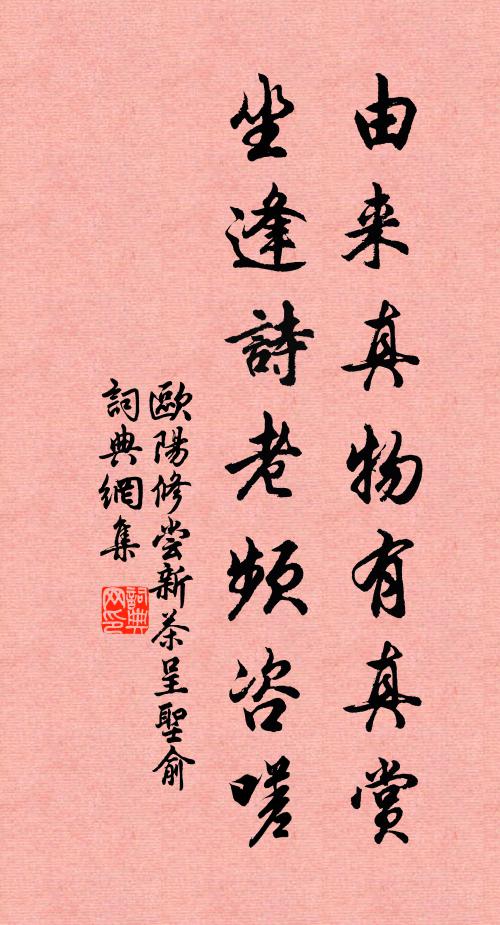 由来真物有真賞
坐逢詩老頻咨嗟
歐陽修嘗新茶呈聖俞
詞典網集
詞典網印